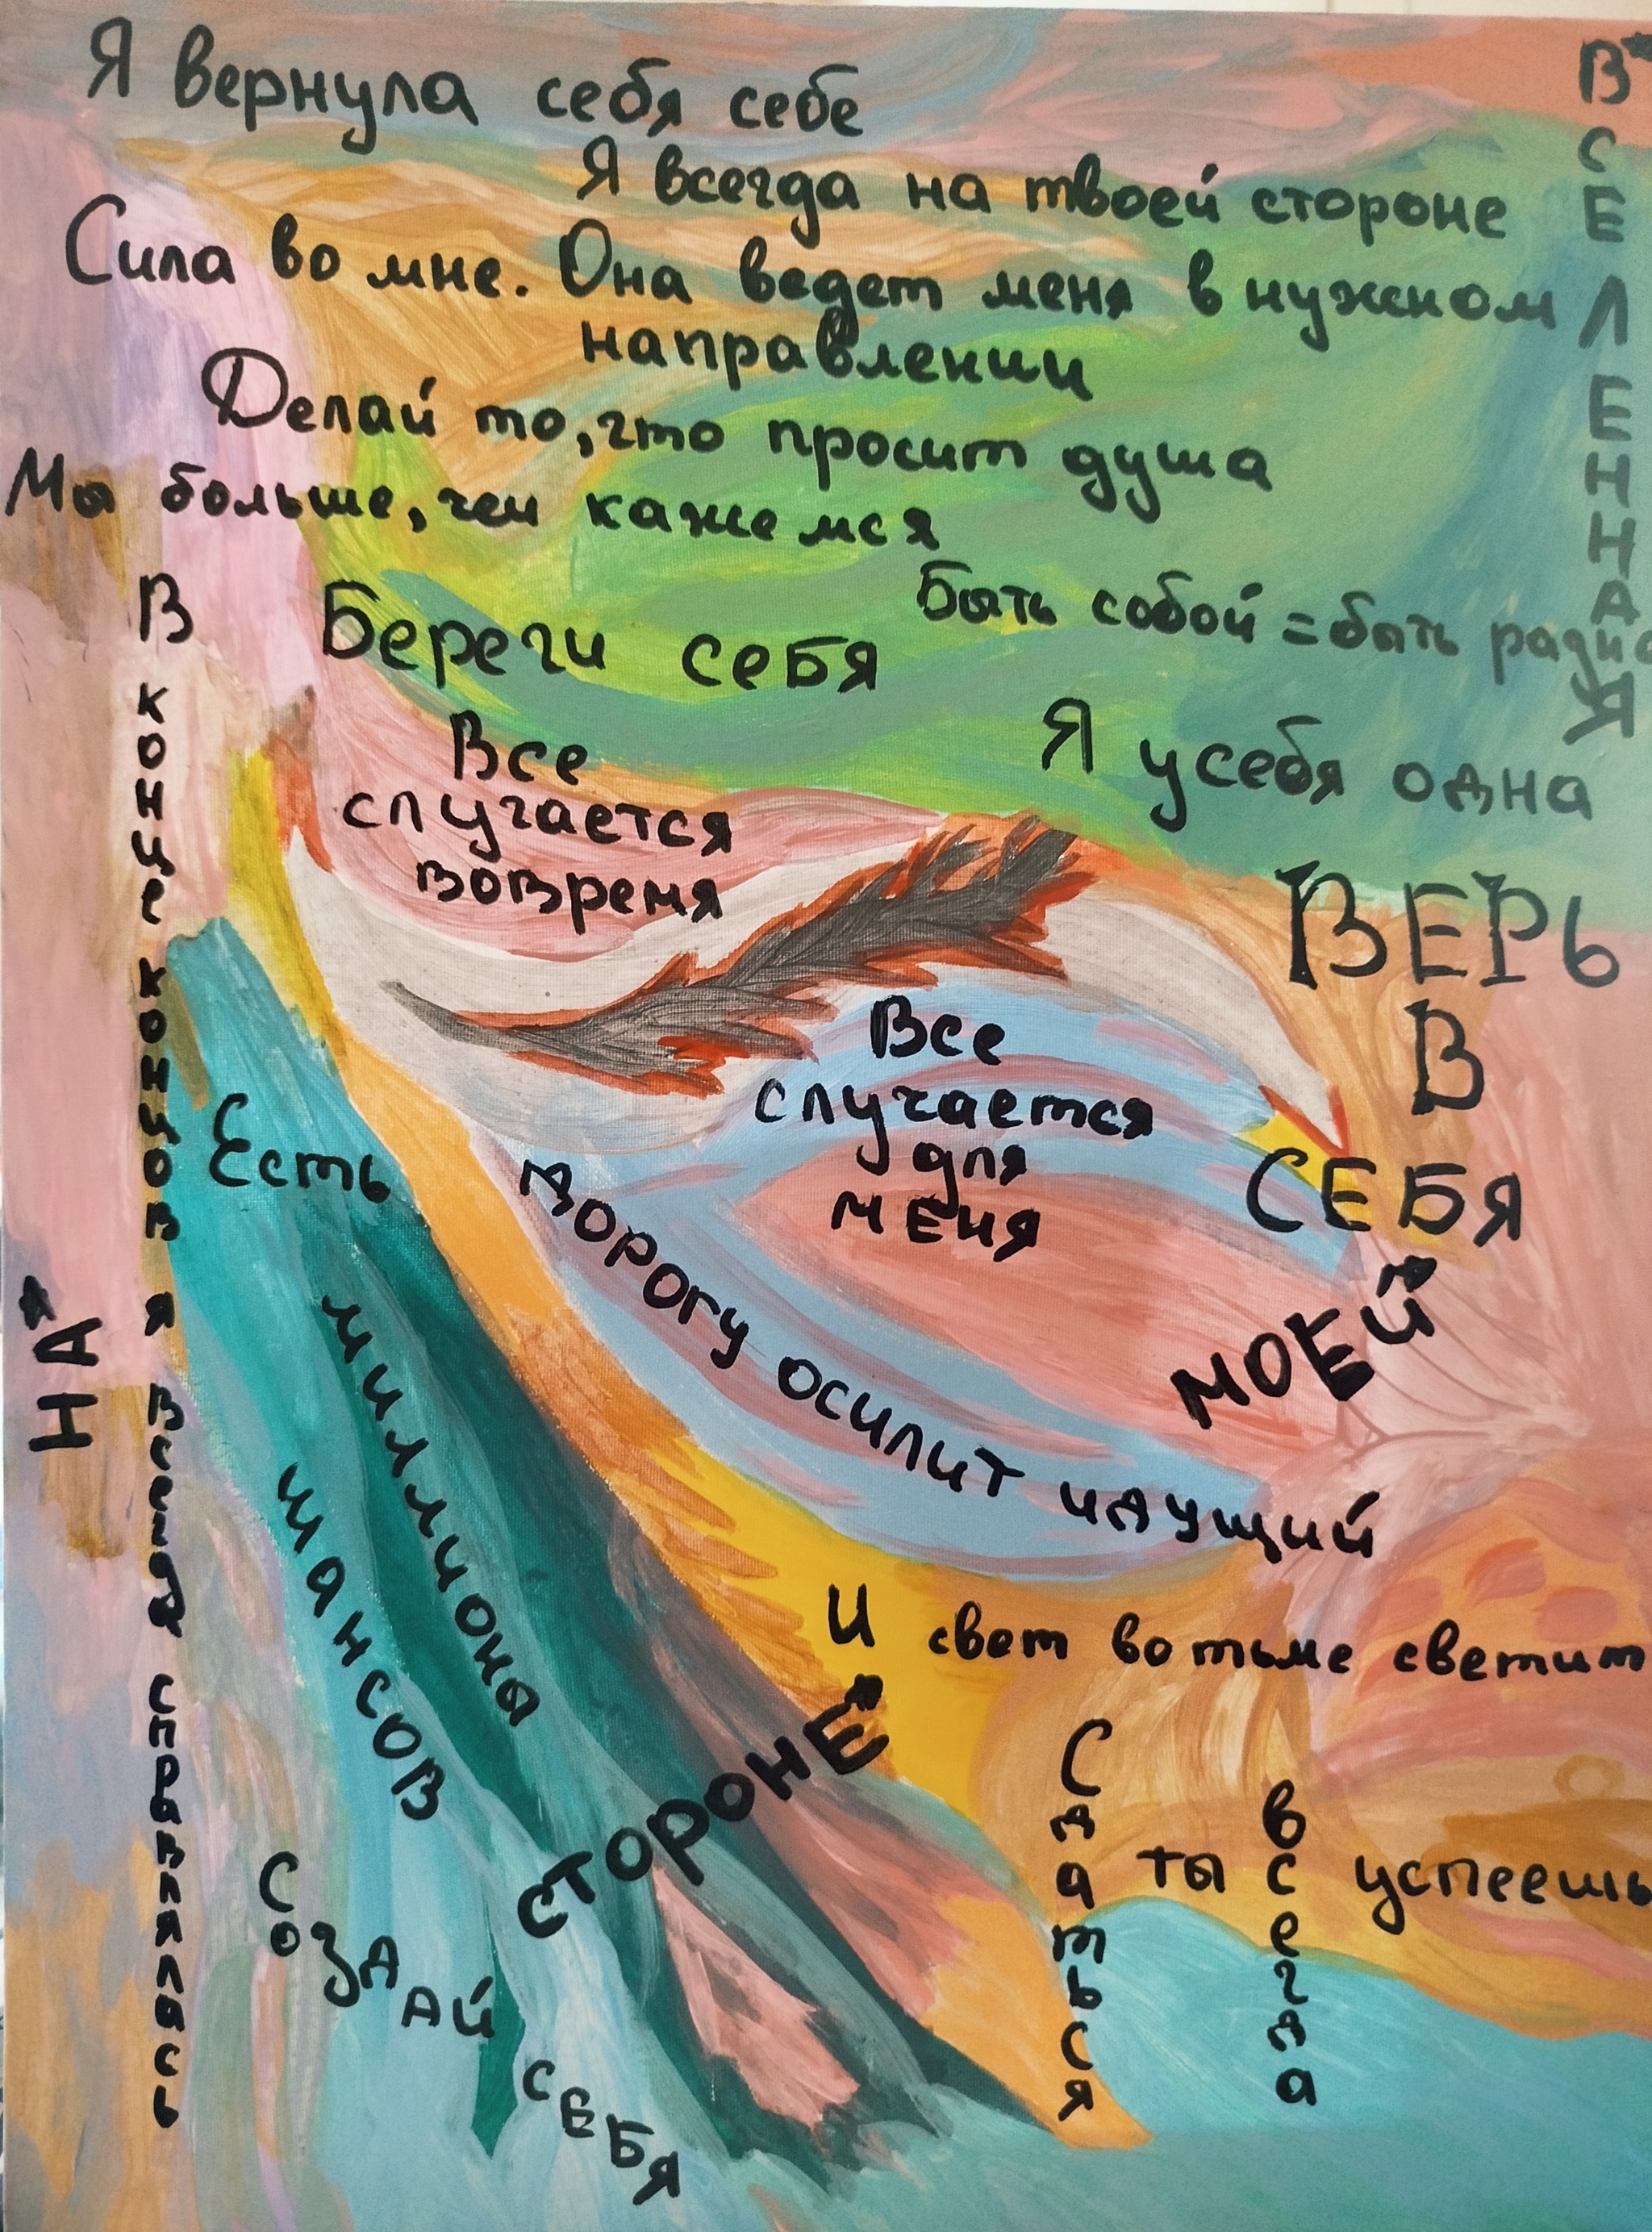 Я вернула себя себе
Я всегда на твоей стороне
Сила во мне. Она ведет меня в нужном
направлении
Делай то, что просит душа
Мы больше, чем кажемся
ВСЕЛЕННАЯ
Береги себя
Быть собой = быть
Я у себя одна
Все
случается
вовремя
ВЕРЬ
В
СЕБЯ
Все
случается
для
меня
В конце концов я всегда справлялась
Есть
миллионы
шансов
дорогу осилит идущий
НА
МОЕЙ
СТОРОНЕ
И свет во тьме светит
Сдаться
ты всегда успеешь
Создай
себя